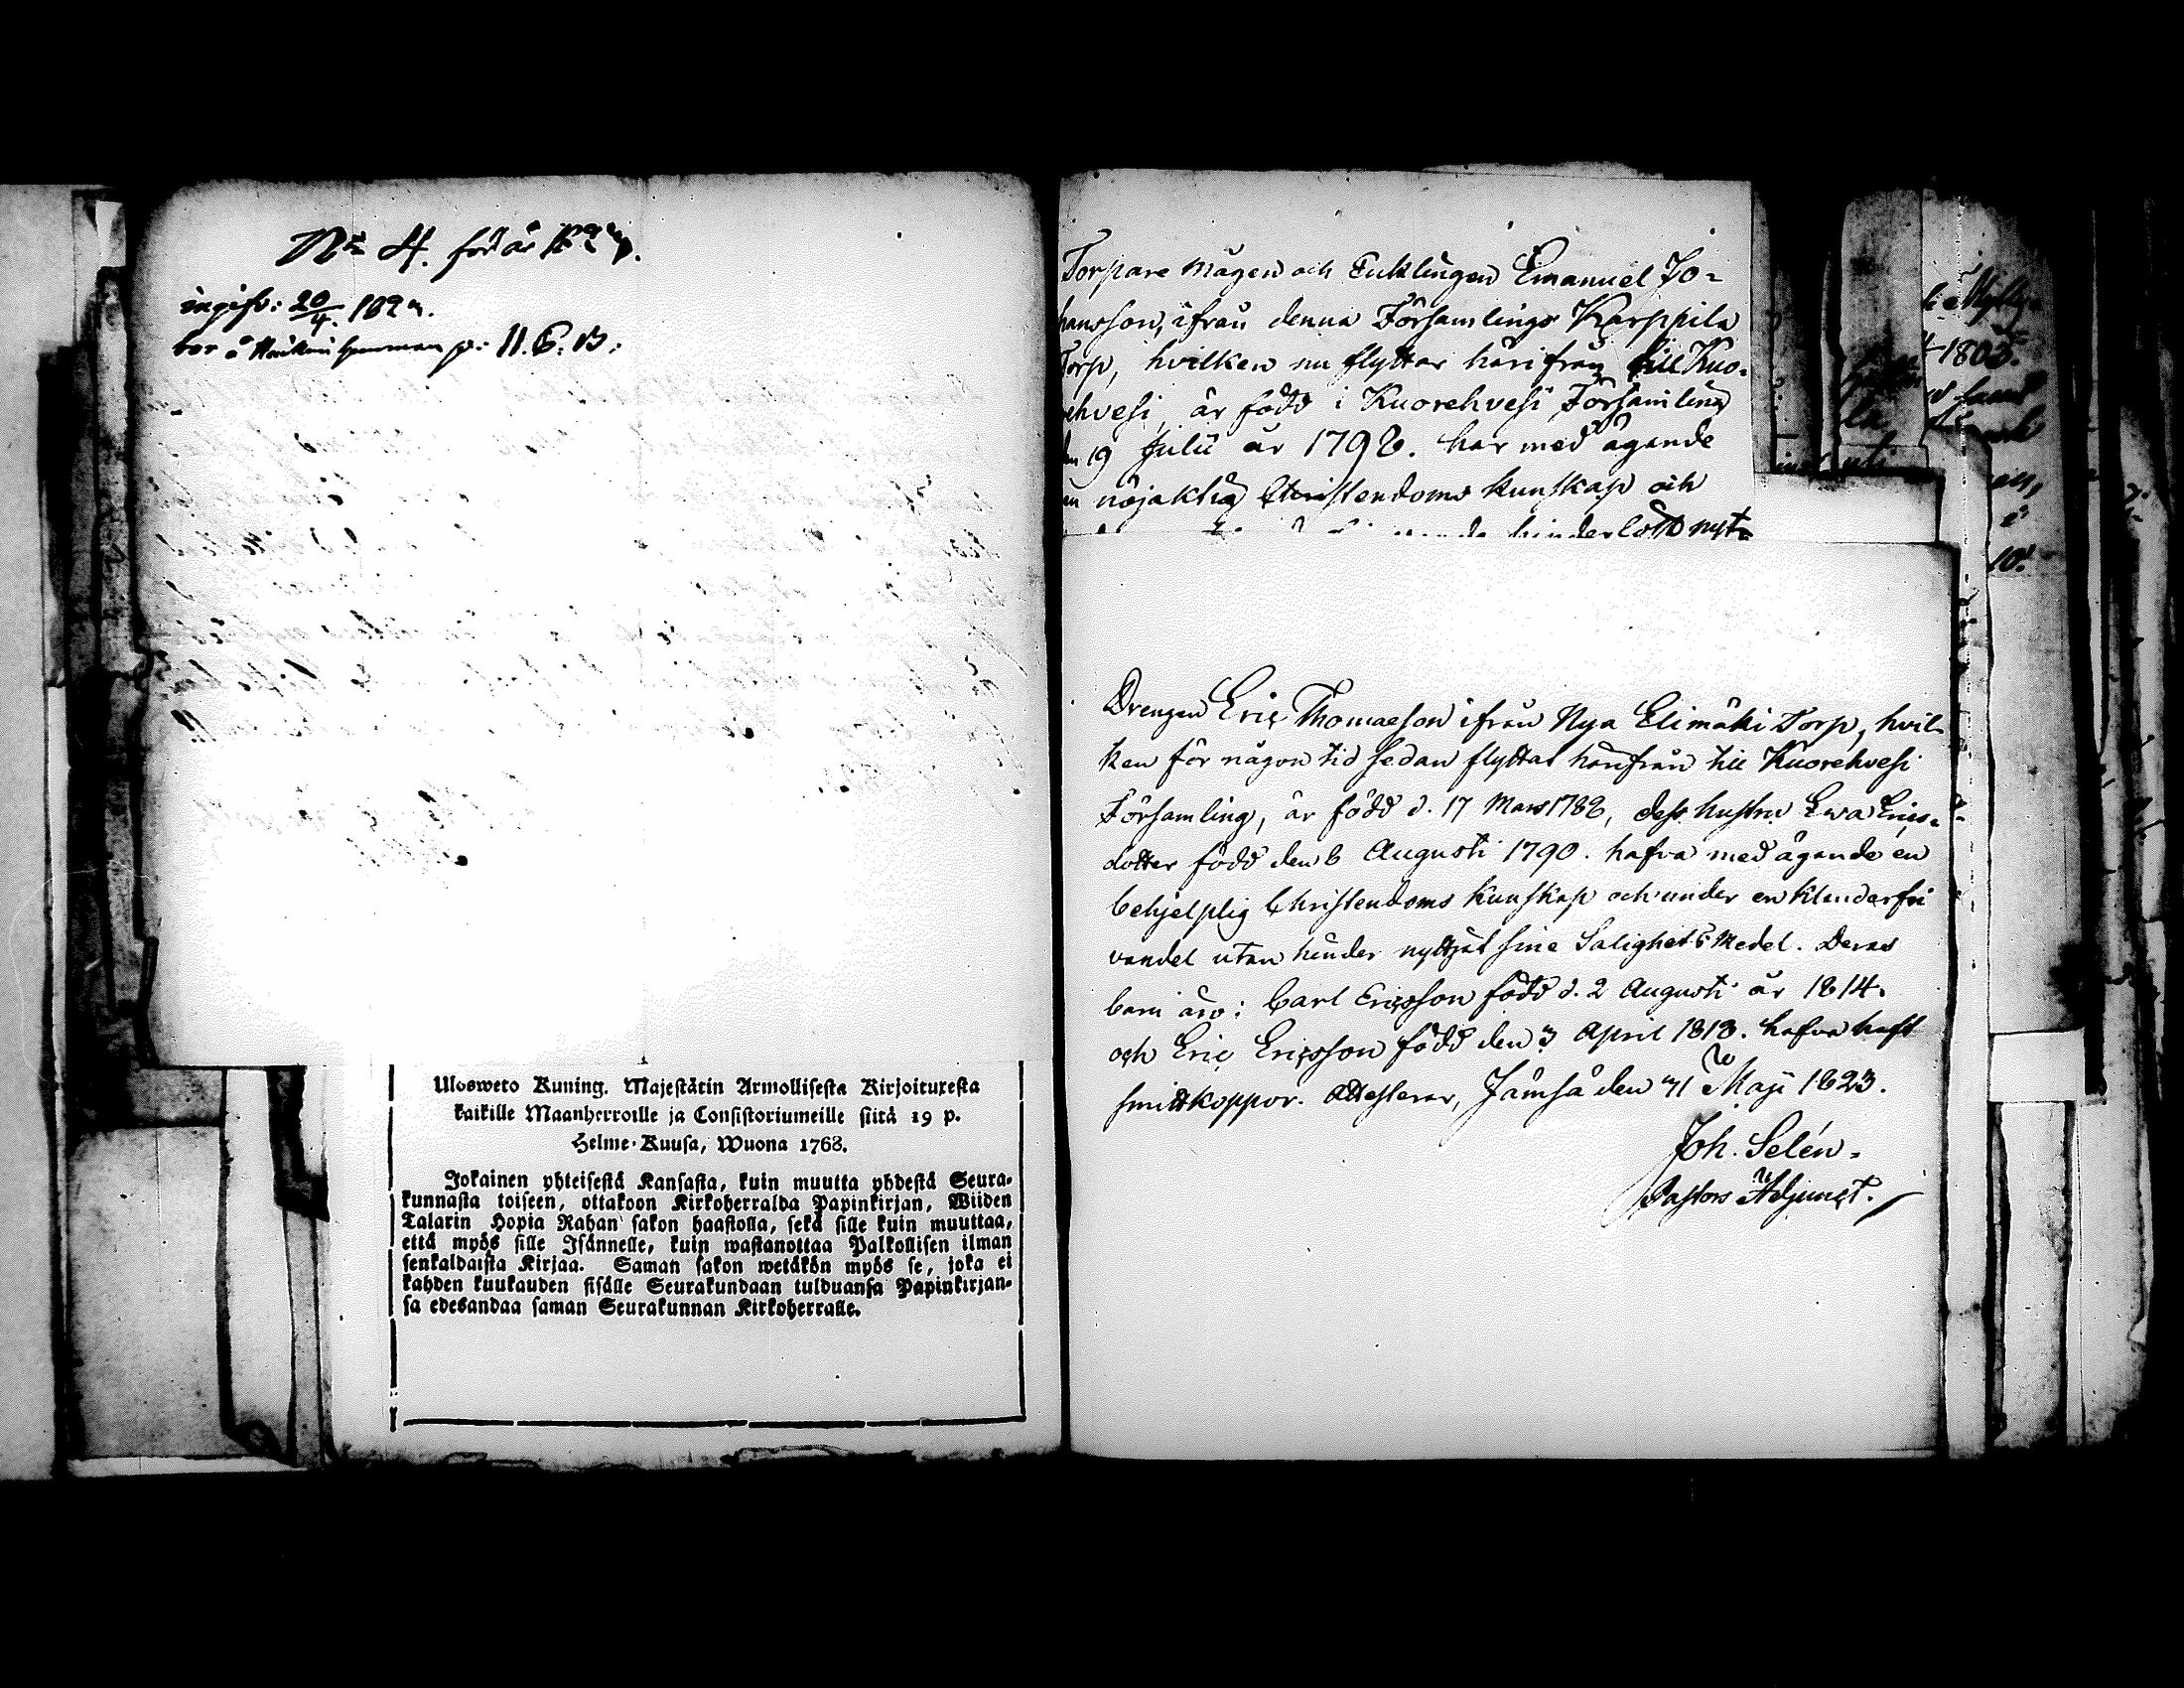 No 4. för år 182
ingifv: 20/4. 182
bor å p: 11. 6. B:
Ulosweto Kuning. Majestätin Armollisesta Kirjoituxesta
kaikille Maanherroille ja Consistoriumeille siitä 19 p.
Helme-Kuusa, Wuona 1768.
Jokainen yhteisestä Kansasta, kuin muutta yhdestä Seura-
kunnasta toiseen, ottakoon Kirkoherralda Papinkirjan, Wiiden
Talarin Hopia Rahan sakon haastolla, sekä sille kuin muuttaa,
että myös sille Isännelle, kuin wastanottaa Palkollisen ilman
senkaldaista Kirjaa. Saman sakon wetäkön myös se, joka ei
kahden kuukauden sisälle Seurakundaan tulduansa Papinkirjan-
sa edesandaa saman Seurakunnan Kirkoherralle.
Torpare mågen och Enklingen Emanuel Jo-
hansson, ifrån denna Församlings Karppila
Torp, hvilken nu flyttar härifrån till Kuo-
rehvesi, är född i Kuorehvesi Församling
den 19 Julii år 1798. har med ägande
en nöjaktig Christendoms kunskap och
hinderlöst nyt-
Drengen Eric Thomaeson ifrån Nya Elimäki Torp, hvil-
ken för någon tid sedan flyttat härifrån till Kuorehvesi
Församling, är född d. 17 Mars 1788, dess hustru Ewa Erics-
dotter född den 6 Augusti 1790. hafva med ägande en
behjelplig Christendoms kunskap och under en klanderfri
vandel utan hinder nyttjat sine Salighets Medel. Deras
barn äro: Carl Ericsson född d. 2 Augusti år 1814.
och Eric Ericsson född den 3 April 1818. hafva haft
smittkoppor. Attesterar, Jämsä den 31 Maji 1823.
Joh. Selén.
Pastors Adjunct.
1803.